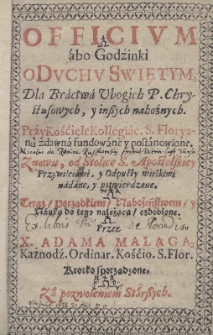 OFFICIVM
ábo Godzinki
O DVCHV SWIĘTYM,
Dla Bráctwá Vbogich P. Chry-
stusowych, y inßych nabożnych.
Przy Kościele Kollegiác. S. Florya-
ná zdawná fundowáne y postánowione.
Znowu, od Stolice S. Apostolskiey
Przywileiámi, y Odpusty wielkimi
nádáne, y potwierdzone.
Teraz, porządkiem, Nabożeństwem, y
Náuką do tego należącą, ozdobione.
Przez
X. ADAMA MALAGĘ,
Kaznodź. Ordinar. Kościo. S. Flor.
Krotko sporządzone.
Zá pozwoleniem Stárßych.